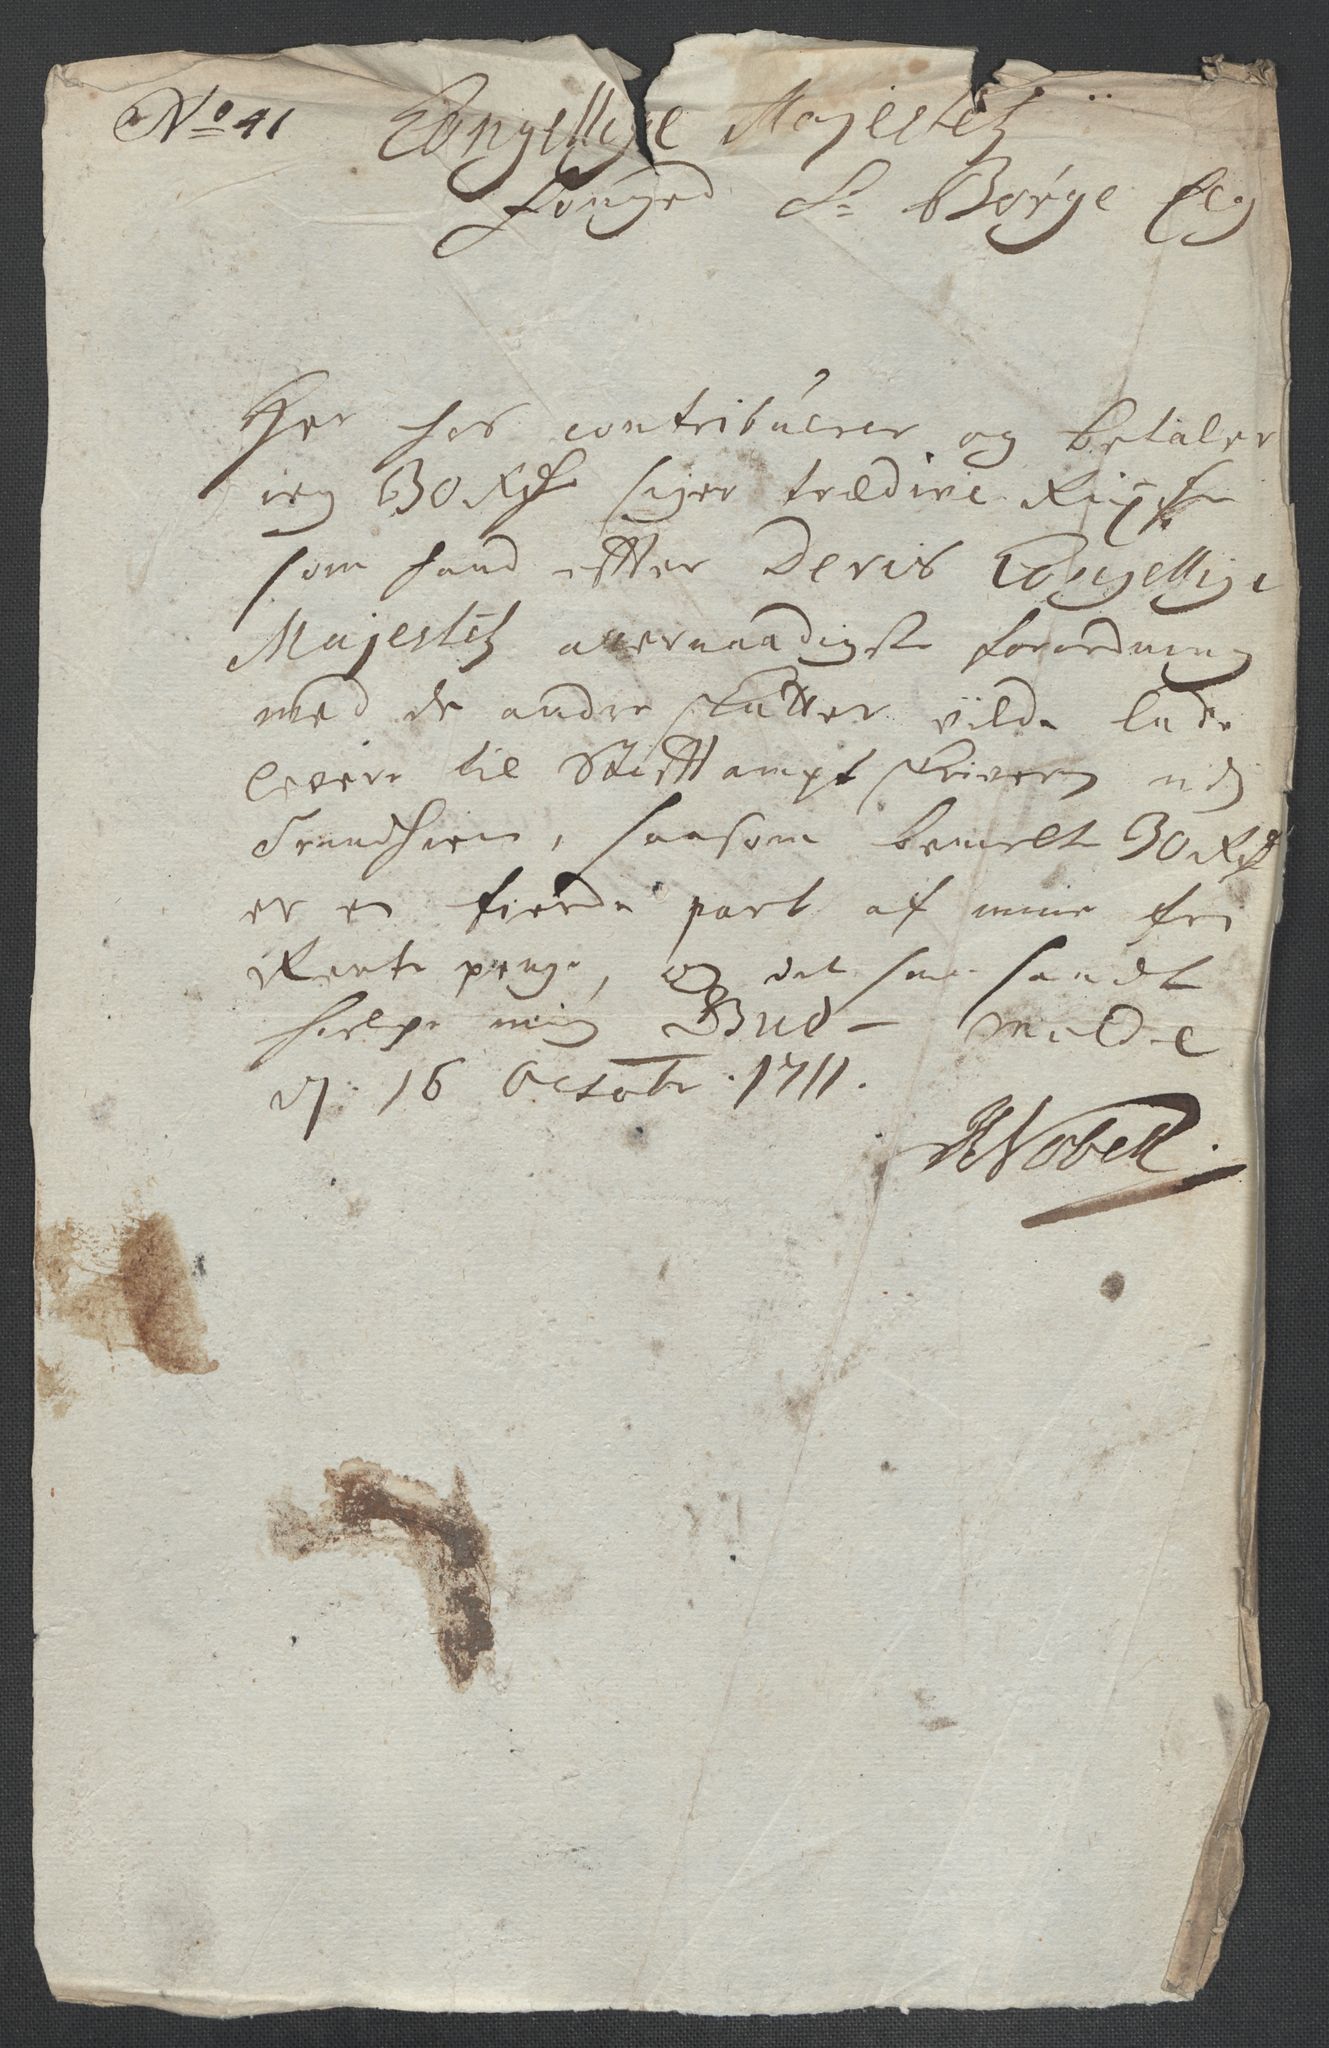 No 41 Kongellige Majestetz
fouged Sr Børge
Her hos contribúerer og betaler
ieg 30 Rdr siger trædive Rixdr
som hand effter Deris Kongellige
Majestetz allernaadigste forordning
med de andre skatter vilde lade
levere til Stifftamptskriveren udj
Trundhiem, saasom bemelte 30 Rdr
er en fierde part af mine fri
Rente penge, og det saa sandt
hielpe mig Gud - Molde
dj 16 Octobr. 1711.